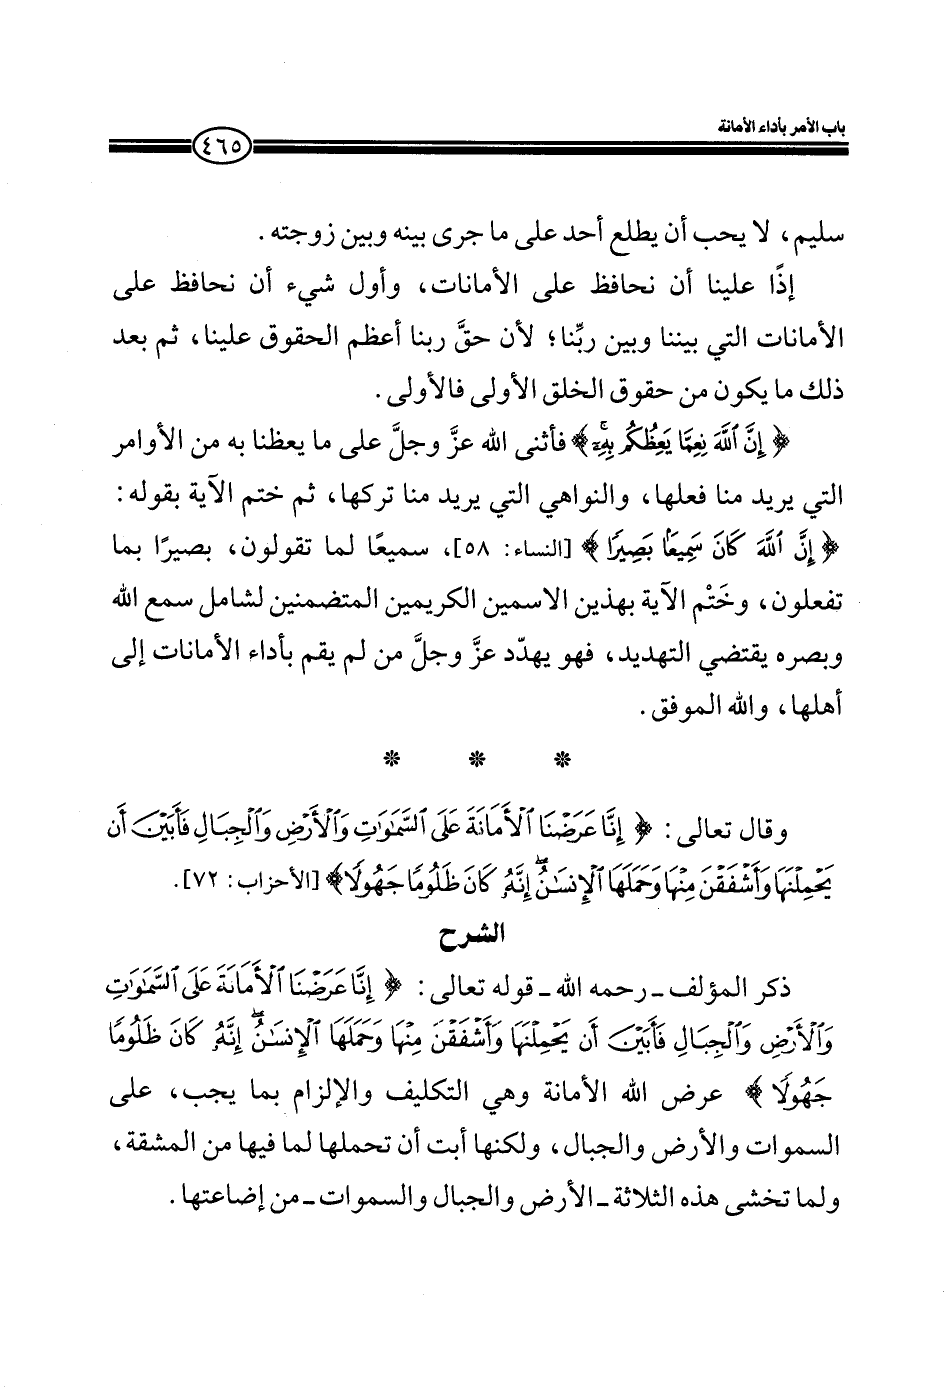 باب الأمر بأداء الأمانة
٤٦٥
سليم، لا يحب أن يطلع أحد على ما جرى بينه وبين زوجته.
إذًا علينا أن نحافظ على الأمانات، وأول شيء أن نحافظ على
الأمانات التي بيننا وبين ربِّنا؛ لأن حقَّ ربنا أعظم الحقوق علينا، ثم بعد
ذلك ما يكون من حقوق الخلق الأولى فالأولى.
﴿ إِنَّ ٱللَّهَ نِعِمَّا يَعِظُكُم بِهِۦٓۚ ﴾ فأثنى الله عزَّ وجلَّ على ما يعظنا به من الأوامر
التي يريد منا فعلها، والنواهي التي يريد منا تركها، ثم ختم الآية بقوله:
﴿ إِنَّ ٱللَّهَ كَانَ سَمِيعًۢا بَصِيرًا ﴾ [النساء: ٥٨]، سميعًا لما تقولون، بصيرًا بما
تفعلون، وخَتْم الآية بهذين الاسمين الكريمين المتضمنين لشامل سمع الله
وبصره يقتضي التهديد، فهو يهدّد عزَّ وجلَّ من لم يقم بأداء الأمانات إلى
أهلها، والله الموفق.
* * *
وقال تعالى: ﴿ إِنَّا عَرَضْنَا ٱلْأَمَانَةَ عَلَى ٱلسَّمَٰوَٰتِ وَٱلْأَرْضِ وَٱلْجِبَالِ فَأَبَيْنَ أَن
يَحْمِلْنَهَا وَأَشْفَقْنَ مِنْهَا وَحَمَلَهَا ٱلْإِنسَٰنُۖ إِنَّهُۥ كَانَ ظَلُومًا جَهُولًا ﴾ [الأحزاب: ٧٢].
الشرح
ذكر المؤلف ـ رحمه الله ـ قوله تعالى: ﴿ إِنَّا عَرَضْنَا ٱلْأَمَانَةَ عَلَى ٱلسَّمَٰوَٰتِ
وَٱلْأَرْضِ وَٱلْجِبَالِ فَأَبَيْنَ أَن يَحْمِلْنَهَا وَأَشْفَقْنَ مِنْهَا وَحَمَلَهَا ٱلْإِنسَٰنُۖ إِنَّهُۥ كَانَ ظَلُومًا
جَهُولًا ﴾ عرض الله الأمانة وهي التكليف والإلزام بما يجب، على
السموات والأرض والجبال، ولكنها أبت أن تحملها لما فيها من المشقة،
ولما تخشى هذه الثلاثة ـ الأرض والجبال والسموات ـ من إضاعتها.